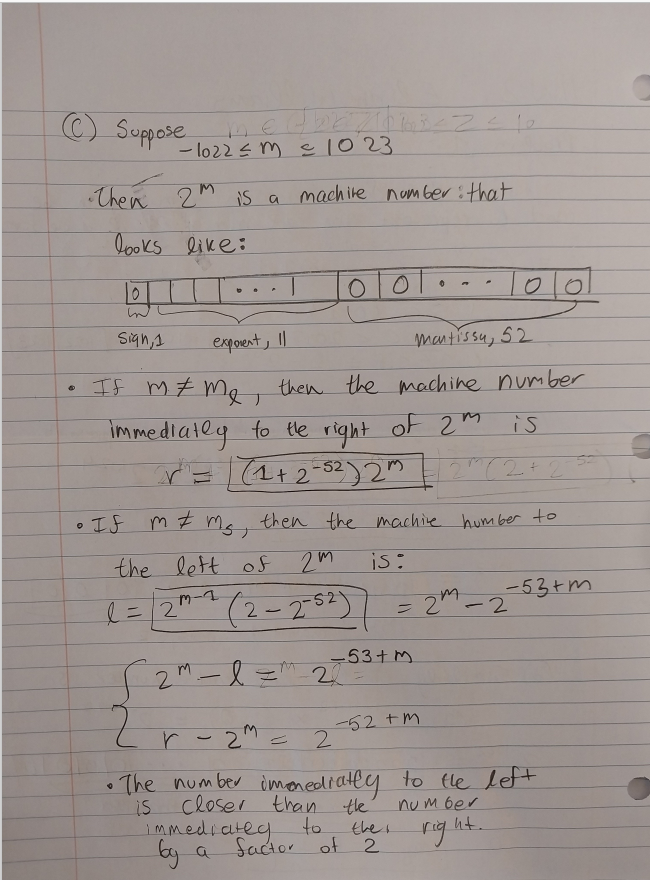 (C) Suppose
-1022 ≤ m ≤ 1023
Then 2^m is a machine number: that
looks like:
0 ... 0 0 ... 0 0
Sign, 1 exponent, 11 mantissa, 52
• If m ≠ m_l, then the machine number
immediately to the right of 2^m is
r = (1 + 2^-52) 2^m
• If m ≠ m_s, then the machine number to
the left of 2^m is:
l = 2^m-1 (2 - 2^-52) = 2^m - 2^-53+m
2^m - l = 2^-53+m
r - 2^m = 2^-52+m
• The number immediately to the left
is closer than the number
immediately to the right.
by a factor of 2